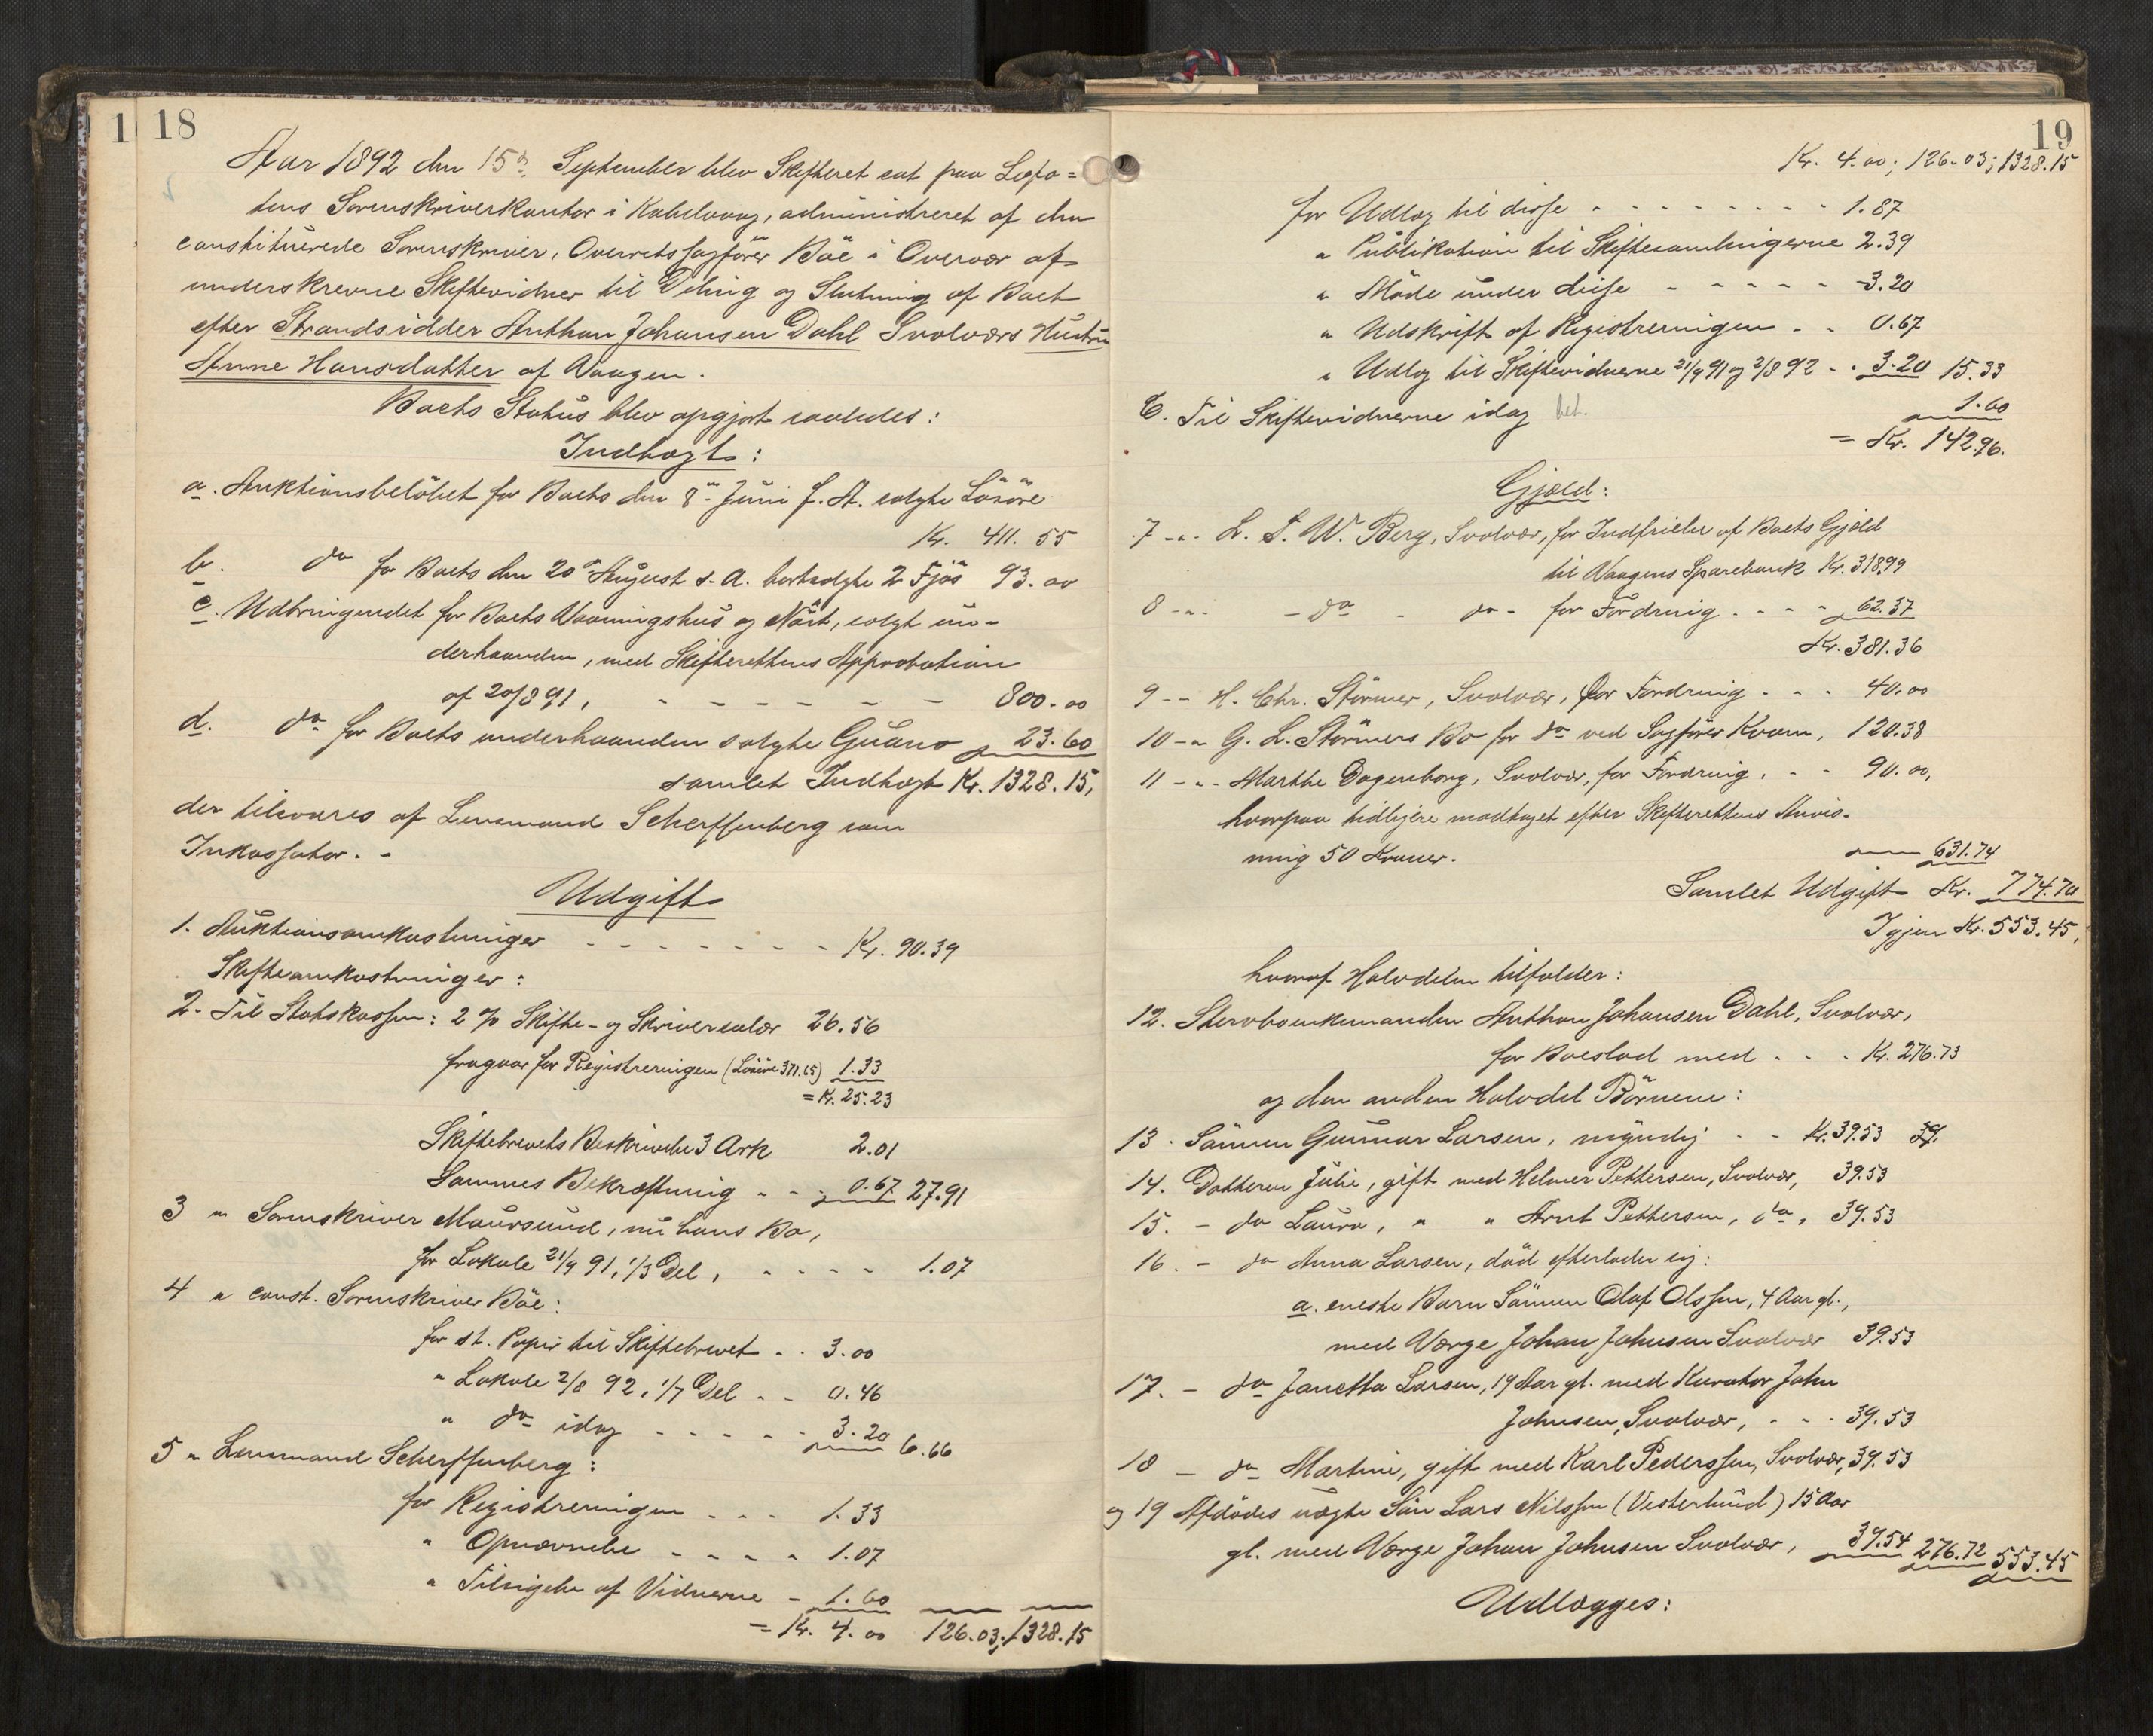 1
18
Aar 1892 den 15de September blev Skifteret sat paa Lofo=
tens Sorenskriverkontor i Kabelvaag, administreret af den
constituerede Sorenskriver, Overretssagfører Bøe i Overvær af
underskrevne Skiftevidner til Deling og Slutning af Boet
efter Strandsidder Anthon Johansen Dahl Svolværs Hustru
Anne Hansdatter af Vaagen.
Boets Status blev opgjort saaledes:
Indtægt:
a. Auktionsbeløbet for Boets den 8de Juni f. A. solgte Løsøre
Kr. 411.55
b. do for Boets den 20de August s. A. bortsolgte 2 Fjøs 93.00
c. Udbringendet for Boets Vaaningshus og Nøst, solgt un-
derhaanden, med Skifterettens Approbation
af 20/8 91, - - - - - - 800.00
d. do for Boets underhaanden solgte Guano 23.60
samlet Indtægt Kr. 1328.15,
der tilsvares af Lensmand Scherffenberg som
Inkassator. -
Udgift
1. Auktionsomkostninger - - - - - - - Kr. 90.39
Skifteomkostninger:
2. Til Statskassen: 2 % Skifte- og Skriversalær 26.56
fragaar for Registreringen (Løsøre 371.65) 1.33
= Kr. 25.23
Skiftebrevets Beskrivelse 3 Ark 2.01
Sammes Bekræftning - - 0.67 27.91
3 " Sorenskriver Maursund, nu hans Bo,
for Lokale 21/9 91, 1/3 Del, - - - - 1.07
4 " const. Sorenskriver Bøe:
for st. Papir til Skiftebrevet - - 3.00
" Lokale 2/8 92, 1/7 Del - - 0.46
" do idag - - - - - 3.20 6.66
5 " Lensmand Scherffenberg:
for Registreringen - - - 1.33
" Opnævnelse - - - - 1.07
" Tilsigelse af Vidnerne - 1.60
= Kr. 4.00 126.03; 1328.15
19
Kr. 4.00; 126.03; 1328.15
for Udlæg til disse - - - - - - - - 1.87
" Publikation til Skiftesamlingerne 2.39
" Møde under disse - - - - - 3.20
" Udskrift af Registreringen - - 0.67
" Udlæg til Skiftevidnerne 21/9 91 og 2/8 92 - - 3.20 15.33
6. Til Skiftevidnerne idag bet. 1.60
= Kr. 142.96.
Gjæld:
7 - " - L. S. W. Berg, Svolvær, for Indfrielse af Boets Gjæld
til Vaagens Sparebank Kr. 318.99
8 - " - - do - do - for Fordring - - - - 62.37
Kr. 381.36
9 - - H. Chr. Størmer, Svolvær, for Fordring - - - 40.00
10 - " G. L. Størmers Bo for do ved Sagfører Kvam, 120.38
11 - " - Marthe Dagenborg, Svolvær, for Fordring, - - 90.00,
hvorpaa tidligere modtaget efter Skifterettens Anvis-
ning 50 Kroner.
631.74
Samlet Udgift Kr. 774.70
Igjen Kr. 553.45,
hvoraf Halvdelen tilfalder:
12. Stervboenkemanden Anthon Johansen Dahl, Svolvær,
for Boeslod med - - - Kr. 276.73
og den anden Halvdel Børnene:
13. Sønnen Gunnar Larsen, myndig - - Kr. 39.53 39.
14. Datteren Julie, gift med Helmer Pettersen, Svolvær, 39.53
15. - do Laura, " " Arnt Pettersen, do, 39.53
16. - do Anna Larsen, død efterlader sig:
a. eneste Barn Sønnen Olaf Olssen, 4 Aar gl.,
med Værge Johan Johnsen Svolvær 39.53
17. - do Janetta Larsen, 19 Aar gl. med Kurator John
Johnsen, Svolvær, - - - 39.53
18 - do Martine, gift med Karl Pederssen, Svolvær, 39.53
og 19 Afdødes uægte Søn Lars Nilssen (Vesterlund) 15 Aar
gl. med Værge Johan Johnsen Svolvær, 39.54 276.72 553.45
Udlægges: